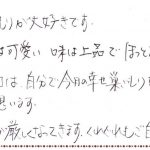 もり)が大好きです。
は可愛い 味は上品で ほっと
日は、自分で今月の幸せ巣ごもり
思います。
が厳しくなってきます。くれぐれもご自